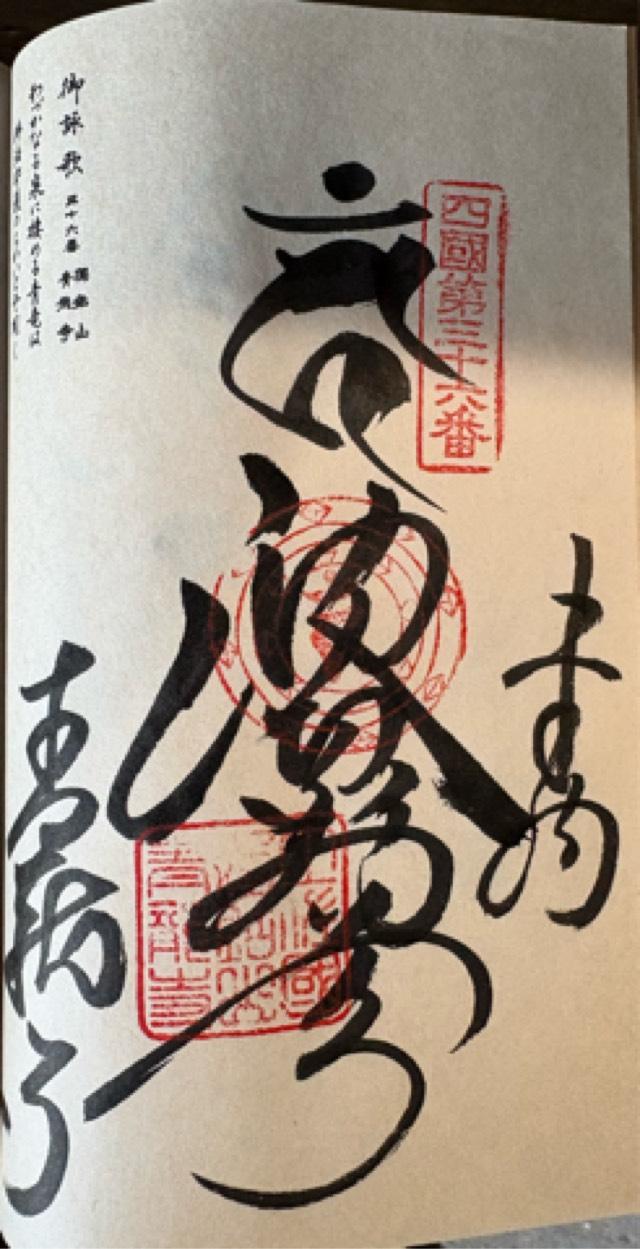 奉納
四國第三十六番
波切不動尊
青龍寺
青龍寺
御詠歌 三十六番 獨鈷山 青龍寺
わづかなる泉に棲める青竜は